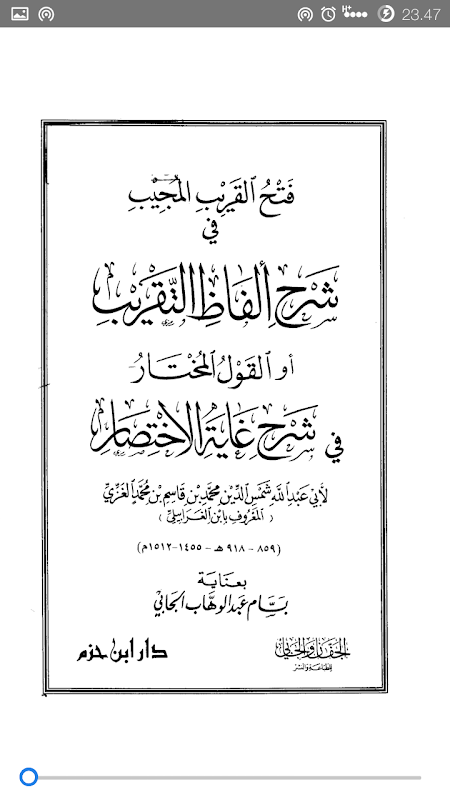 23.47
فَتْحُ القَرِيْبِ المُجِيْبِ
في
شَرْحِ أَلْفَاظِ التَّقْرِيْبِ
أو القَوْلُ المُخْتَارُ
في شَرْحِ غَايَةِ الاخْتِصَارِ
لأبي عَبْدِ اللَّه شَمْسِ الدِّيْنِ مُحَمَّدِ بْنِ قَاسِمِ بْنِ مُحَمَّدٍ الغَزِّيّ
( المَعْرُوفِ بِابْنِ الغَرَابِيْلِيّ )
(٨٥٩ - ٩١٨ هـ - ١٤٥٥-١٥١٢م)
بعنَاية
بسَّام عَبد الوهَّاب الجَابي
الجفان والجابي
للطباعة والنشر
دار ابن حزم